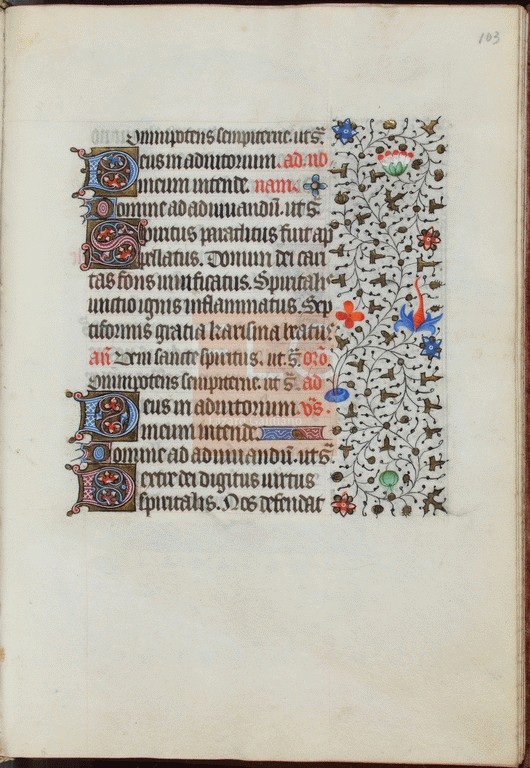 103
Omnipotens sempiterne. ut s̄.
Deus in adiutorium. ad. no
meum intende. nam.
Domine ad adiuuandū. ut s̄.
Spiritus paraclitus fuit ap
pellatus. Donum dei cari
tas fons uiuificatus. Spiritalis
unctio ignis inflammatus. Sep
tiformis gratia karisma uocatus
añ. Veni sancte spiritus. ut s̄. orō
Omnipotens sempiterne. ut s̄. ad
Deus in adiutorium. vs̄.
meum intende.
Domine ad adiuuandū. ut s̄.
Dextre dei digitus uirtus
spiritalis. Nos defendat